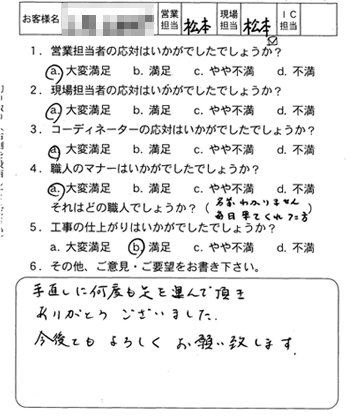 お客様名 営業担当 松本 現場担当 松本 ＩＣ担当
１．営業担当者の応対はいかがでしたでしょうか？
a. 大変満足 b. 満足 c. やや不満 d. 不満
２．現場担当者の応対はいかがでしたでしょうか？
a. 大変満足 b. 満足 c. やや不満 d. 不満
３．コーディネーターの応対はいかがでしたでしょうか？
a. 大変満足 b. 満足 c. やや不満 d. 不満
４．職人のマナーはいかがでしたでしょうか？
a. 大変満足 b. 満足 c. やや不満 d. 不満
それはどの職人でしょうか？（名前わかりません
毎日来てくれた方
５．工事の仕上がりはいかがでしたでしょうか？
a. 大変満足 b. 満足 c. やや不満 d. 不満
６．その他、ご意見・ご要望をお書き下さい。
手直しに何度も足を運んで頂き
ありがとうございました.
今後ともよろしくお願い致します.